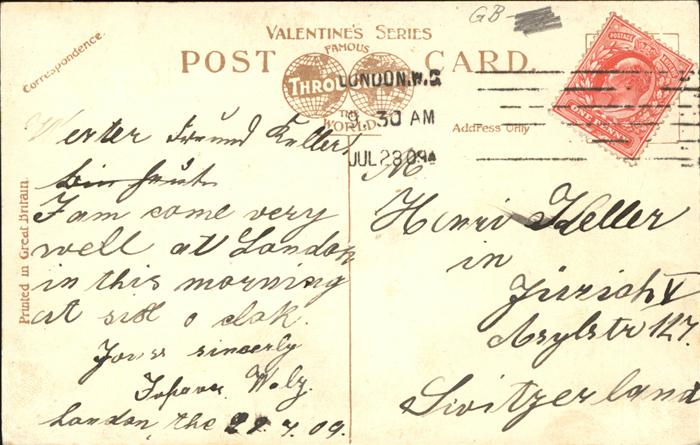 GB
VALENTINE'S SERIES
FAMOUS
POST CARD.
THROUGHOUT
THE
WORLD.
Correspondence.
Address Only
Printed in Great Britain.
LONDON.W.C
9 30 AM
JUL 23 09
POSTAGE
ONE PENNY
Werter Freund Keller!
bin heute
I am come very
well at London
in this morning
at six o clok.
Yours sincerly
Waly.
London, the 22.7.09.
M
Henri Keller
in
Zürich V
Asylstr 127.
Switzerland